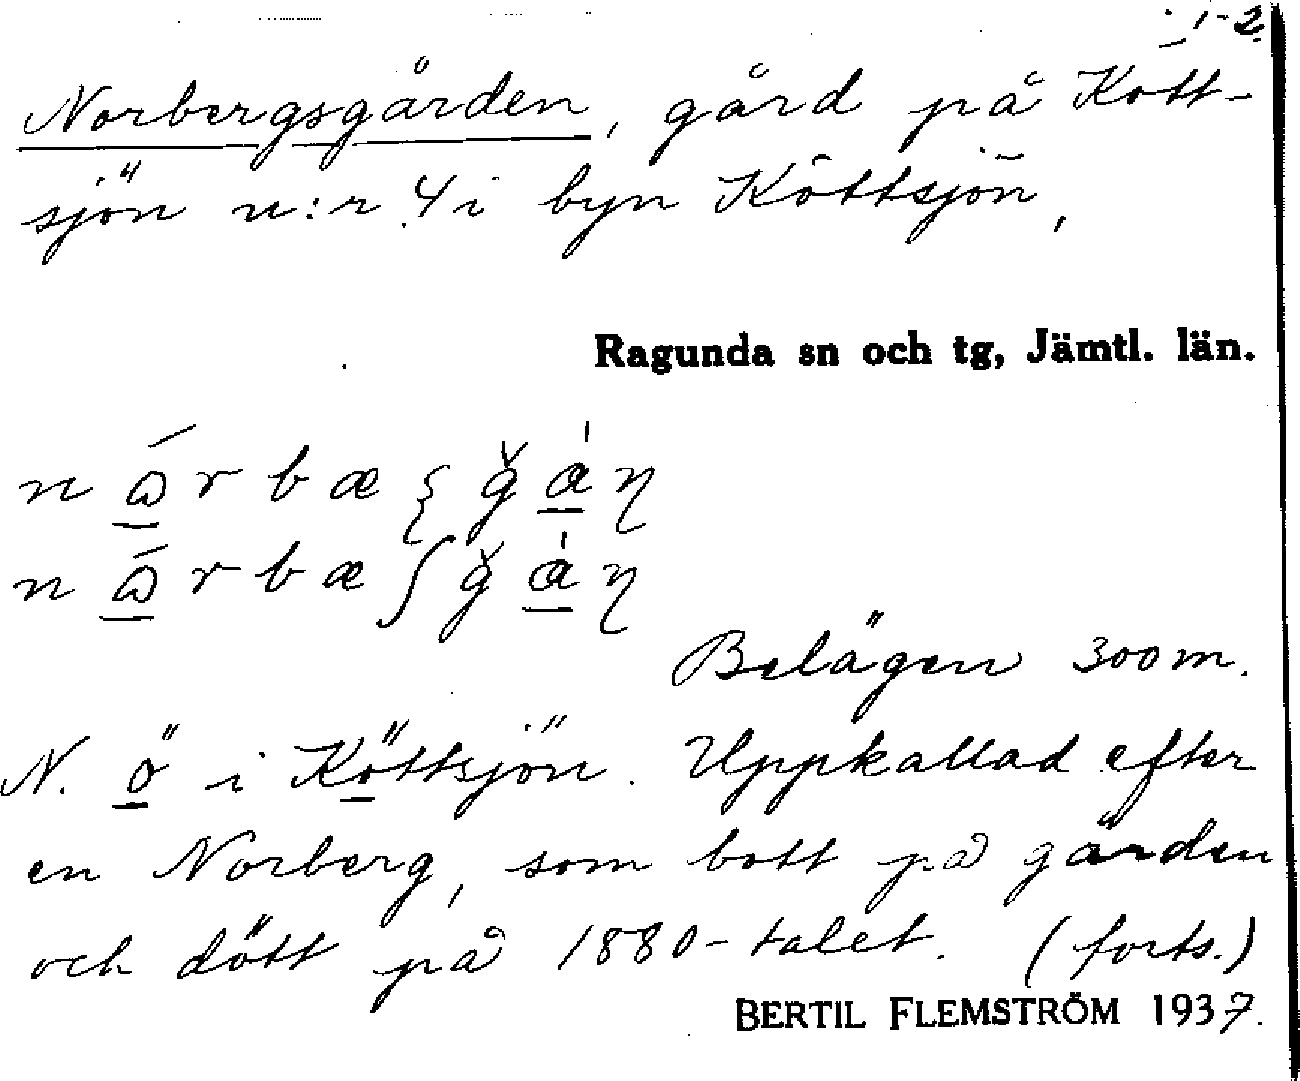 1-2
Norbergsgården, gård på Kött-
sjön n:r 4 i byn Köttsjön,
Ragunda sn och tg, Jämtl. län.
Belägen 300 m.
N. ö i Köttsjön. Uppkallad efter
en Norberg, som bott på gården
och dött på 1880-talet. (forts.)
BERTIL FLEMSTRÖM 1937.